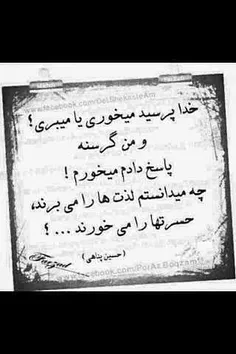 www.facebook.com/DelShekasteAm
خدا پرسید میخوری یا میبری؟
و من گرسنه
پاسخ دادم میخورم !
چه میدانستم لذت ها را می برند،
حسرتها را می خورند ... ؟
(حسین پناهی)